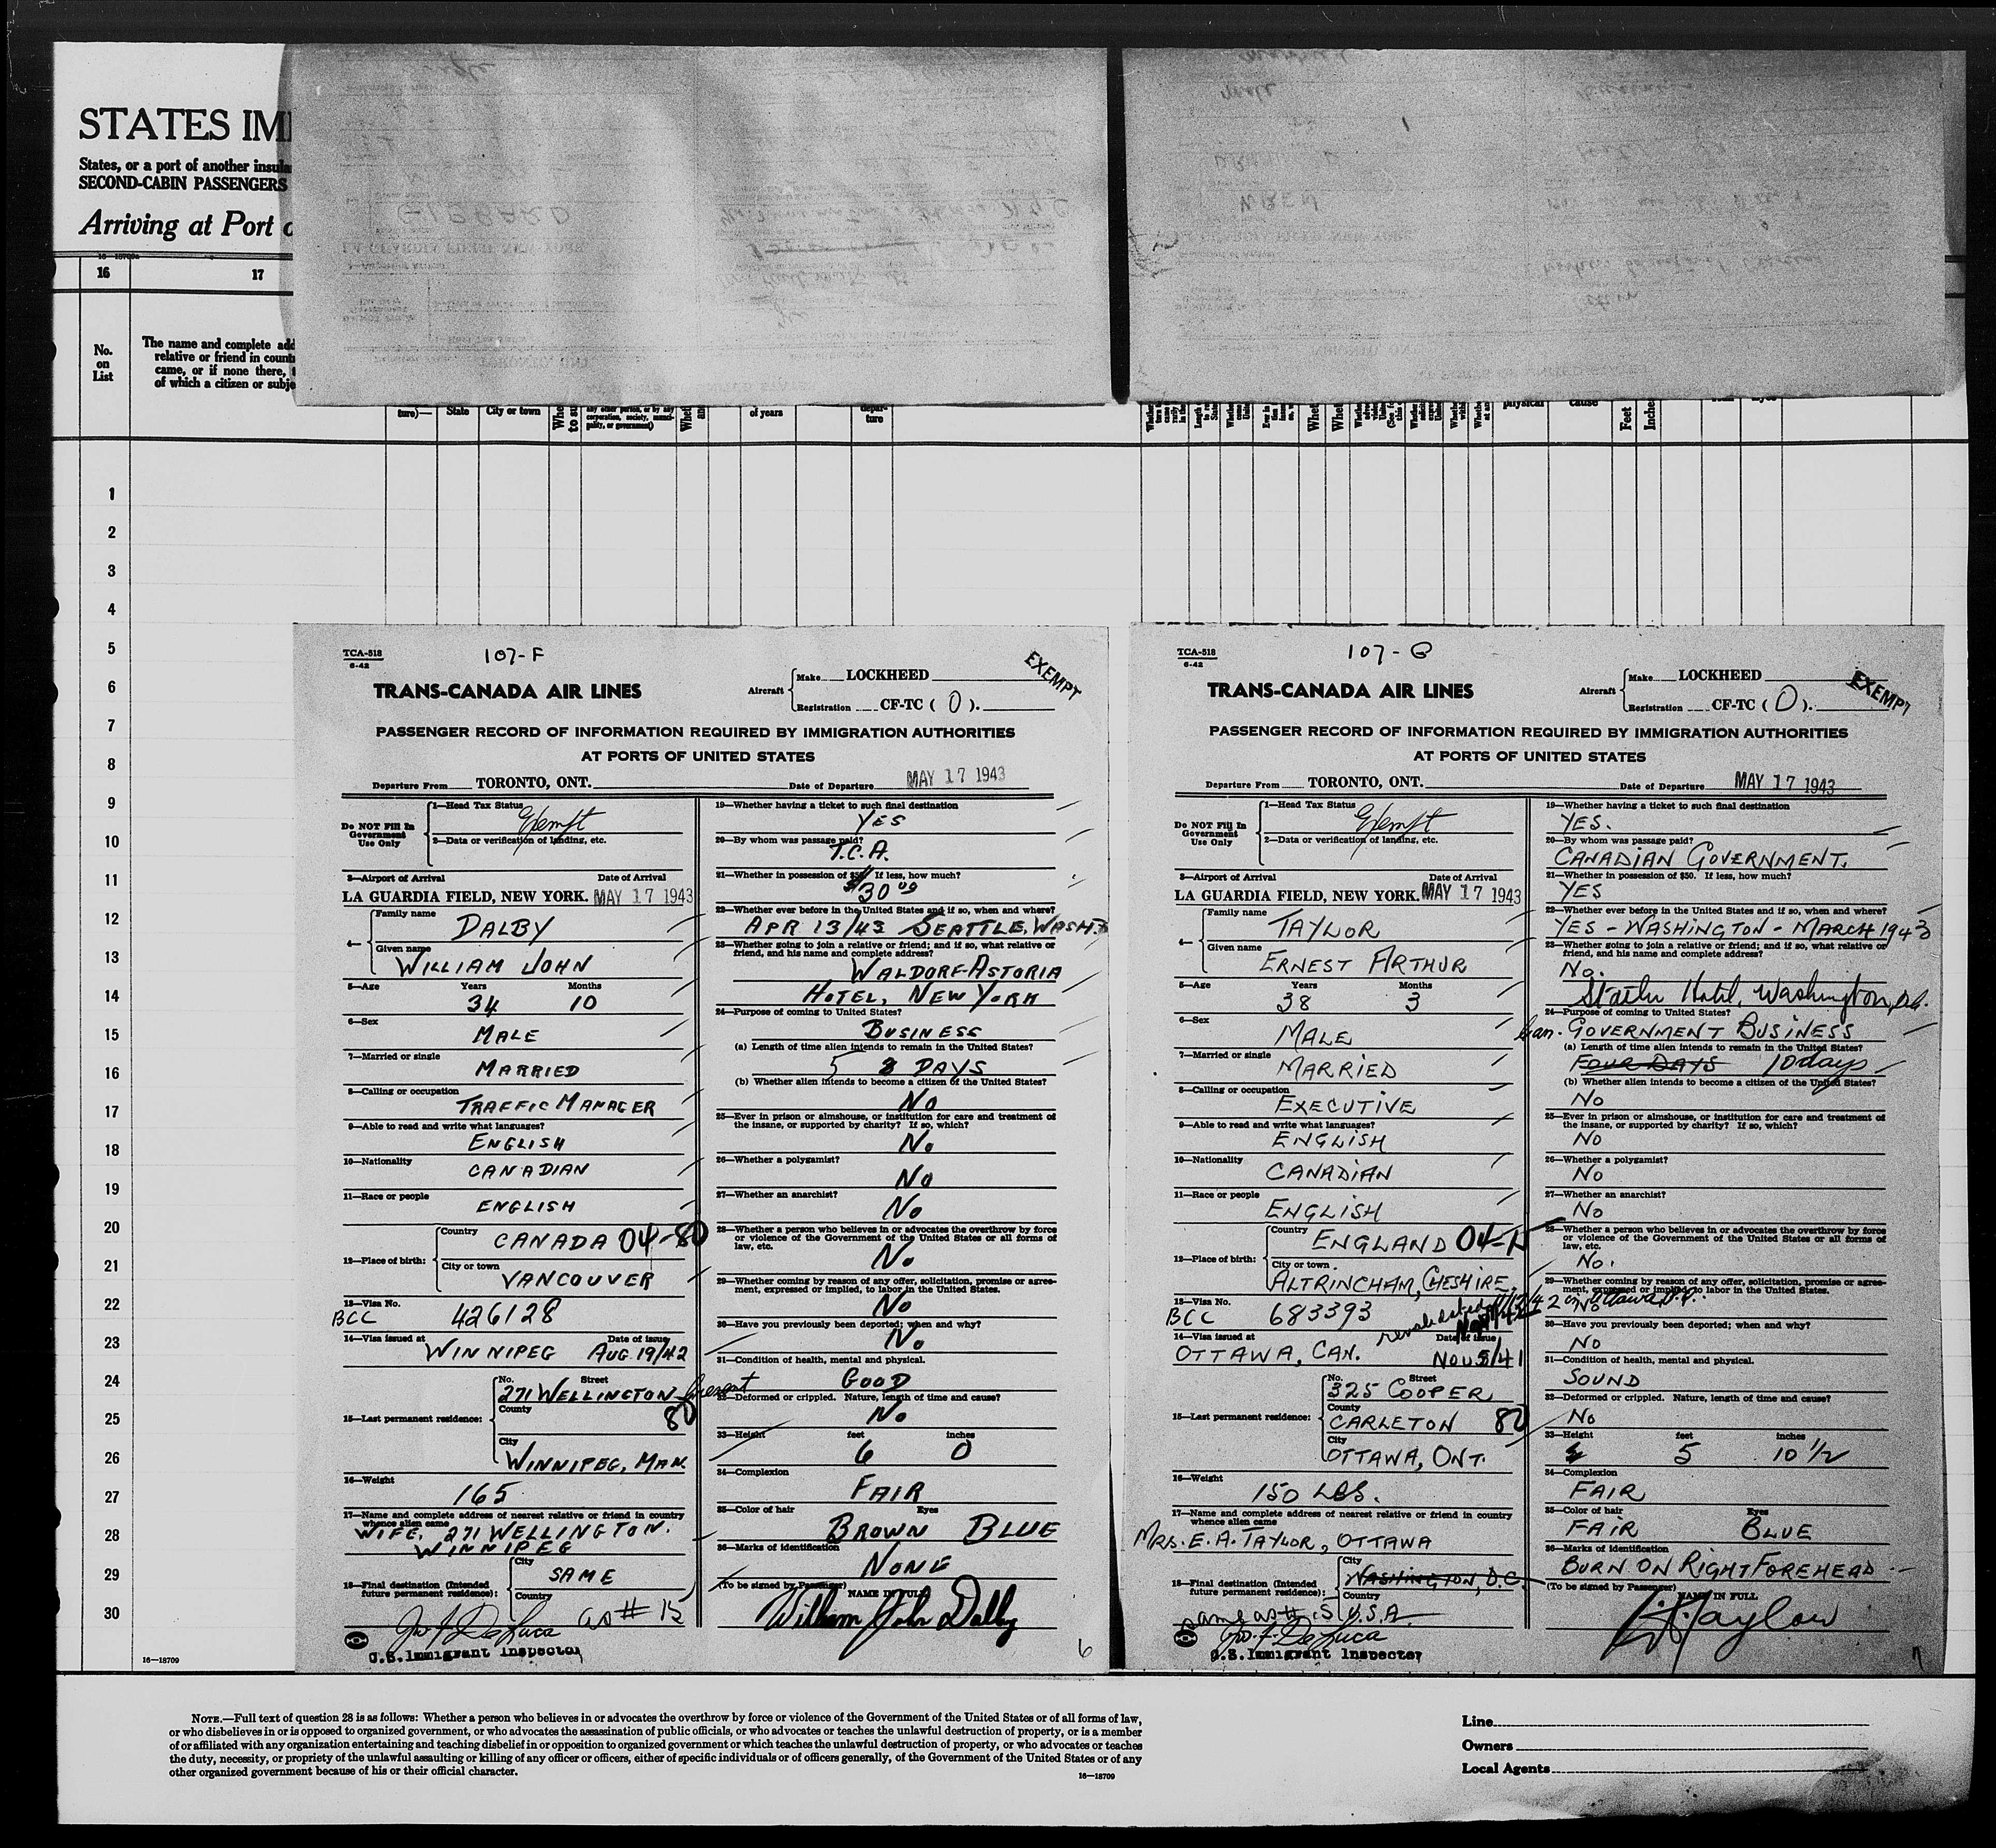 STATES IM
States, or a port of another insula
SECOND-CABIN PASSENGERS
Arriving at Port o
16 17
No.
on
List
The name and complete add
relative or friend in count
came, or if none there,
of which a citizen or subje
ture)— State City or town of years depar-
ture
physical cause Feet Inches
1
2
3
4
5
6
7
8
9
10
11
12
13
14
15
16
17
18
19
20
21
22
23
24
25
26
27
28
29
30
16—18709
TCA-518
6-42
107-F
EXEMPT
TRANS-CANADA AIR LINES
Aircraft Make LOCKHEED
Registration CF-TC ( O ).
PASSENGER RECORD OF INFORMATION REQUIRED BY IMMIGRATION AUTHORITIES
AT PORTS OF UNITED STATES
Departure From TORONTO, ONT. Date of Departure MAY 17 1943
Do NOT Fill In
Government
Use Only
1—Head Tax Status
Exempt
2—Data or verification of landing, etc.
3—Airport of Arrival Date of Arrival
LA GUARDIA FIELD, NEW YORK. MAY 17 1943
4— Family name
DALBY
Given name
WILLIAM JOHN
5—Age Years Months
34 10
6—Sex
MALE
7—Married or single
MARRIED
8—Calling or occupation
TRAFFIC MANAGER
9—Able to read and write what languages?
ENGLISH
10—Nationality
CANADIAN
11—Race or people
ENGLISH
12—Place of birth: Country
CANADA 04-80
City or town
VANCOUVER
13—Visa No.
BCC 426128
14—Visa issued at Date of issue
WINNIPEG AUG. 19/42
15—Last permanent residence: No. Street
271 WELLINGTON Crescent
County
80
City
WINNIPEG, MAN.
16—Weight
165
17—Name and complete address of nearest relative or friend in country
whence alien came
WIFE, 271 WELLINGTON.
WINNIPEG
18—Final destination (Intended
future permanent residence): City
SAME
Country
as # 15
Jno. F. DeLuca
U.S. Immigrant Inspector
19—Whether having a ticket to such final destination
YES
20—By whom was passage paid?
T.C.A.
21—Whether in possession of $50. If less, how much?
$30 00
22—Whether ever before in the United States and if so, when and where?
APR 13/43 SEATTLE, WASH.
23—Whether going to join a relative or friend; and if so, what relative or
friend, and his name and complete address?
WALDORF-ASTORIA
HOTEL, NEW YORK
24—Purpose of coming to United States?
BUSINESS
(a) Length of time alien intends to remain in the United States?
5 DAYS
(b) Whether alien intends to become a citizen of the United States?
NO
25—Ever in prison or almshouse, or institution for care and treatment of
the insane, or supported by charity? If so, which?
NO
26—Whether a polygamist?
NO
27—Whether an anarchist?
NO
28—Whether a person who believes in or advocates the overthrow by force
or violence of the Government of the United States or all forms of
law, etc.
NO
29—Whether coming by reason of any offer, solicitation, promise or agree-
ment, expressed or implied, to labor in the United States.
NO
30—Have you previously been deported; when and why?
NO
31—Condition of health, mental and physical.
GOOD
32—Deformed or crippled. Nature, length of time and cause?
NO
33—Height feet inches
6 0
34—Complexion
FAIR
35—Color of hair Eyes
BROWN BLUE
36—Marks of identification
NONE
(To be signed by Passenger) NAME IN FULL
William John Dalby
6
TCA-518
6-42
107-G
EXEMPT
TRANS-CANADA AIR LINES
Aircraft Make LOCKHEED
Registration CF-TC ( O ).
PASSENGER RECORD OF INFORMATION REQUIRED BY IMMIGRATION AUTHORITIES
AT PORTS OF UNITED STATES
Departure From TORONTO, ONT. Date of Departure MAY 17 1943
Do NOT Fill In
Government
Use Only
1—Head Tax Status
Exempt
2—Data or verification of landing, etc.
3—Airport of Arrival Date of Arrival
LA GUARDIA FIELD, NEW YORK. MAY 17 1943
4— Family name
TAYLOR
Given name
ERNEST ARTHUR
5—Age Years Months
38 3
6—Sex
MALE
7—Married or single
MARRIED
8—Calling or occupation
EXECUTIVE
9—Able to read and write what languages?
ENGLISH
10—Nationality
CANADIAN
11—Race or people
ENGLISH
12—Place of birth: Country
ENGLAND
City or town
ALTRINCHAM, CHESHIRE.
13—Visa No.
BCC 683393
revalidated
14—Visa issued at Date of issue
OTTAWA, CAN. NOV 5/41
15—Last permanent residence: No. Street
325 COOPER
County
CARLETON 80
City
OTTAWA, ONT.
16—Weight
150 LBS.
17—Name and complete address of nearest relative or friend in country
whence alien came
MRS. E. A. TAYLOR, OTTAWA
18—Final destination (Intended
future permanent residence): City
WASHINGTON, D.C.
Country
same as # 15 U.S.A.
Jno. F. DeLuca
U.S. Immigrant Inspector
19—Whether having a ticket to such final destination
YES.
20—By whom was passage paid?
CANADIAN GOVERNMENT.
21—Whether in possession of $50. If less, how much?
YES
22—Whether ever before in the United States and if so, when and where?
YES - WASHINGTON - MARCH 1943
23—Whether going to join a relative or friend; and if so, what relative or
friend, and his name and complete address?
No.
Statler Hotel, Washington, D.C.
24—Purpose of coming to United States?
Can. GOVERNMENT BUSINESS
(a) Length of time alien intends to remain in the United States?
FOUR DAYS 10 days
(b) Whether alien intends to become a citizen of the United States?
NO
25—Ever in prison or almshouse, or institution for care and treatment of
the insane, or supported by charity? If so, which?
NO
26—Whether a polygamist?
NO
27—Whether an anarchist?
NO
28—Whether a person who believes in or advocates the overthrow by force
or violence of the Government of the United States or all forms of
law, etc.
NO.
29—Whether coming by reason of any offer, solicitation, promise or agree-
ment, expressed or implied, to labor in the United States.
NO
30—Have you previously been deported; when and why?
NO
31—Condition of health, mental and physical.
SOUND
32—Deformed or crippled. Nature, length of time and cause?
NO
33—Height feet inches
5 10 1/2
34—Complexion
FAIR
35—Color of hair Eyes
FAIR BLUE
36—Marks of identification
BURN ON RIGHT FOREHEAD
(To be signed by Passenger) NAME IN FULL
E.A. Taylor
7
NOTE.—Full text of question 28 is as follows: Whether a person who believes in or advocates the overthrow by force or violence of the Government of the United States or of all forms of law,
or who disbelieves in or is opposed to organized government, or who advocates the assassination of public officials, or who advocates or teaches the unlawful destruction of property, or is a member
of or affiliated with any organization entertaining and teaching disbelief in or opposition to organized government or which teaches the unlawful destruction of property, or who advocates or teaches
the duty, necessity, or propriety of the unlawful assaulting or killing of any officer or officers, either of specific individuals or of officers generally, of the Government of the United States or of any
other organized government because of his or their official character.
16—18709
Line
Owners
Local Agents